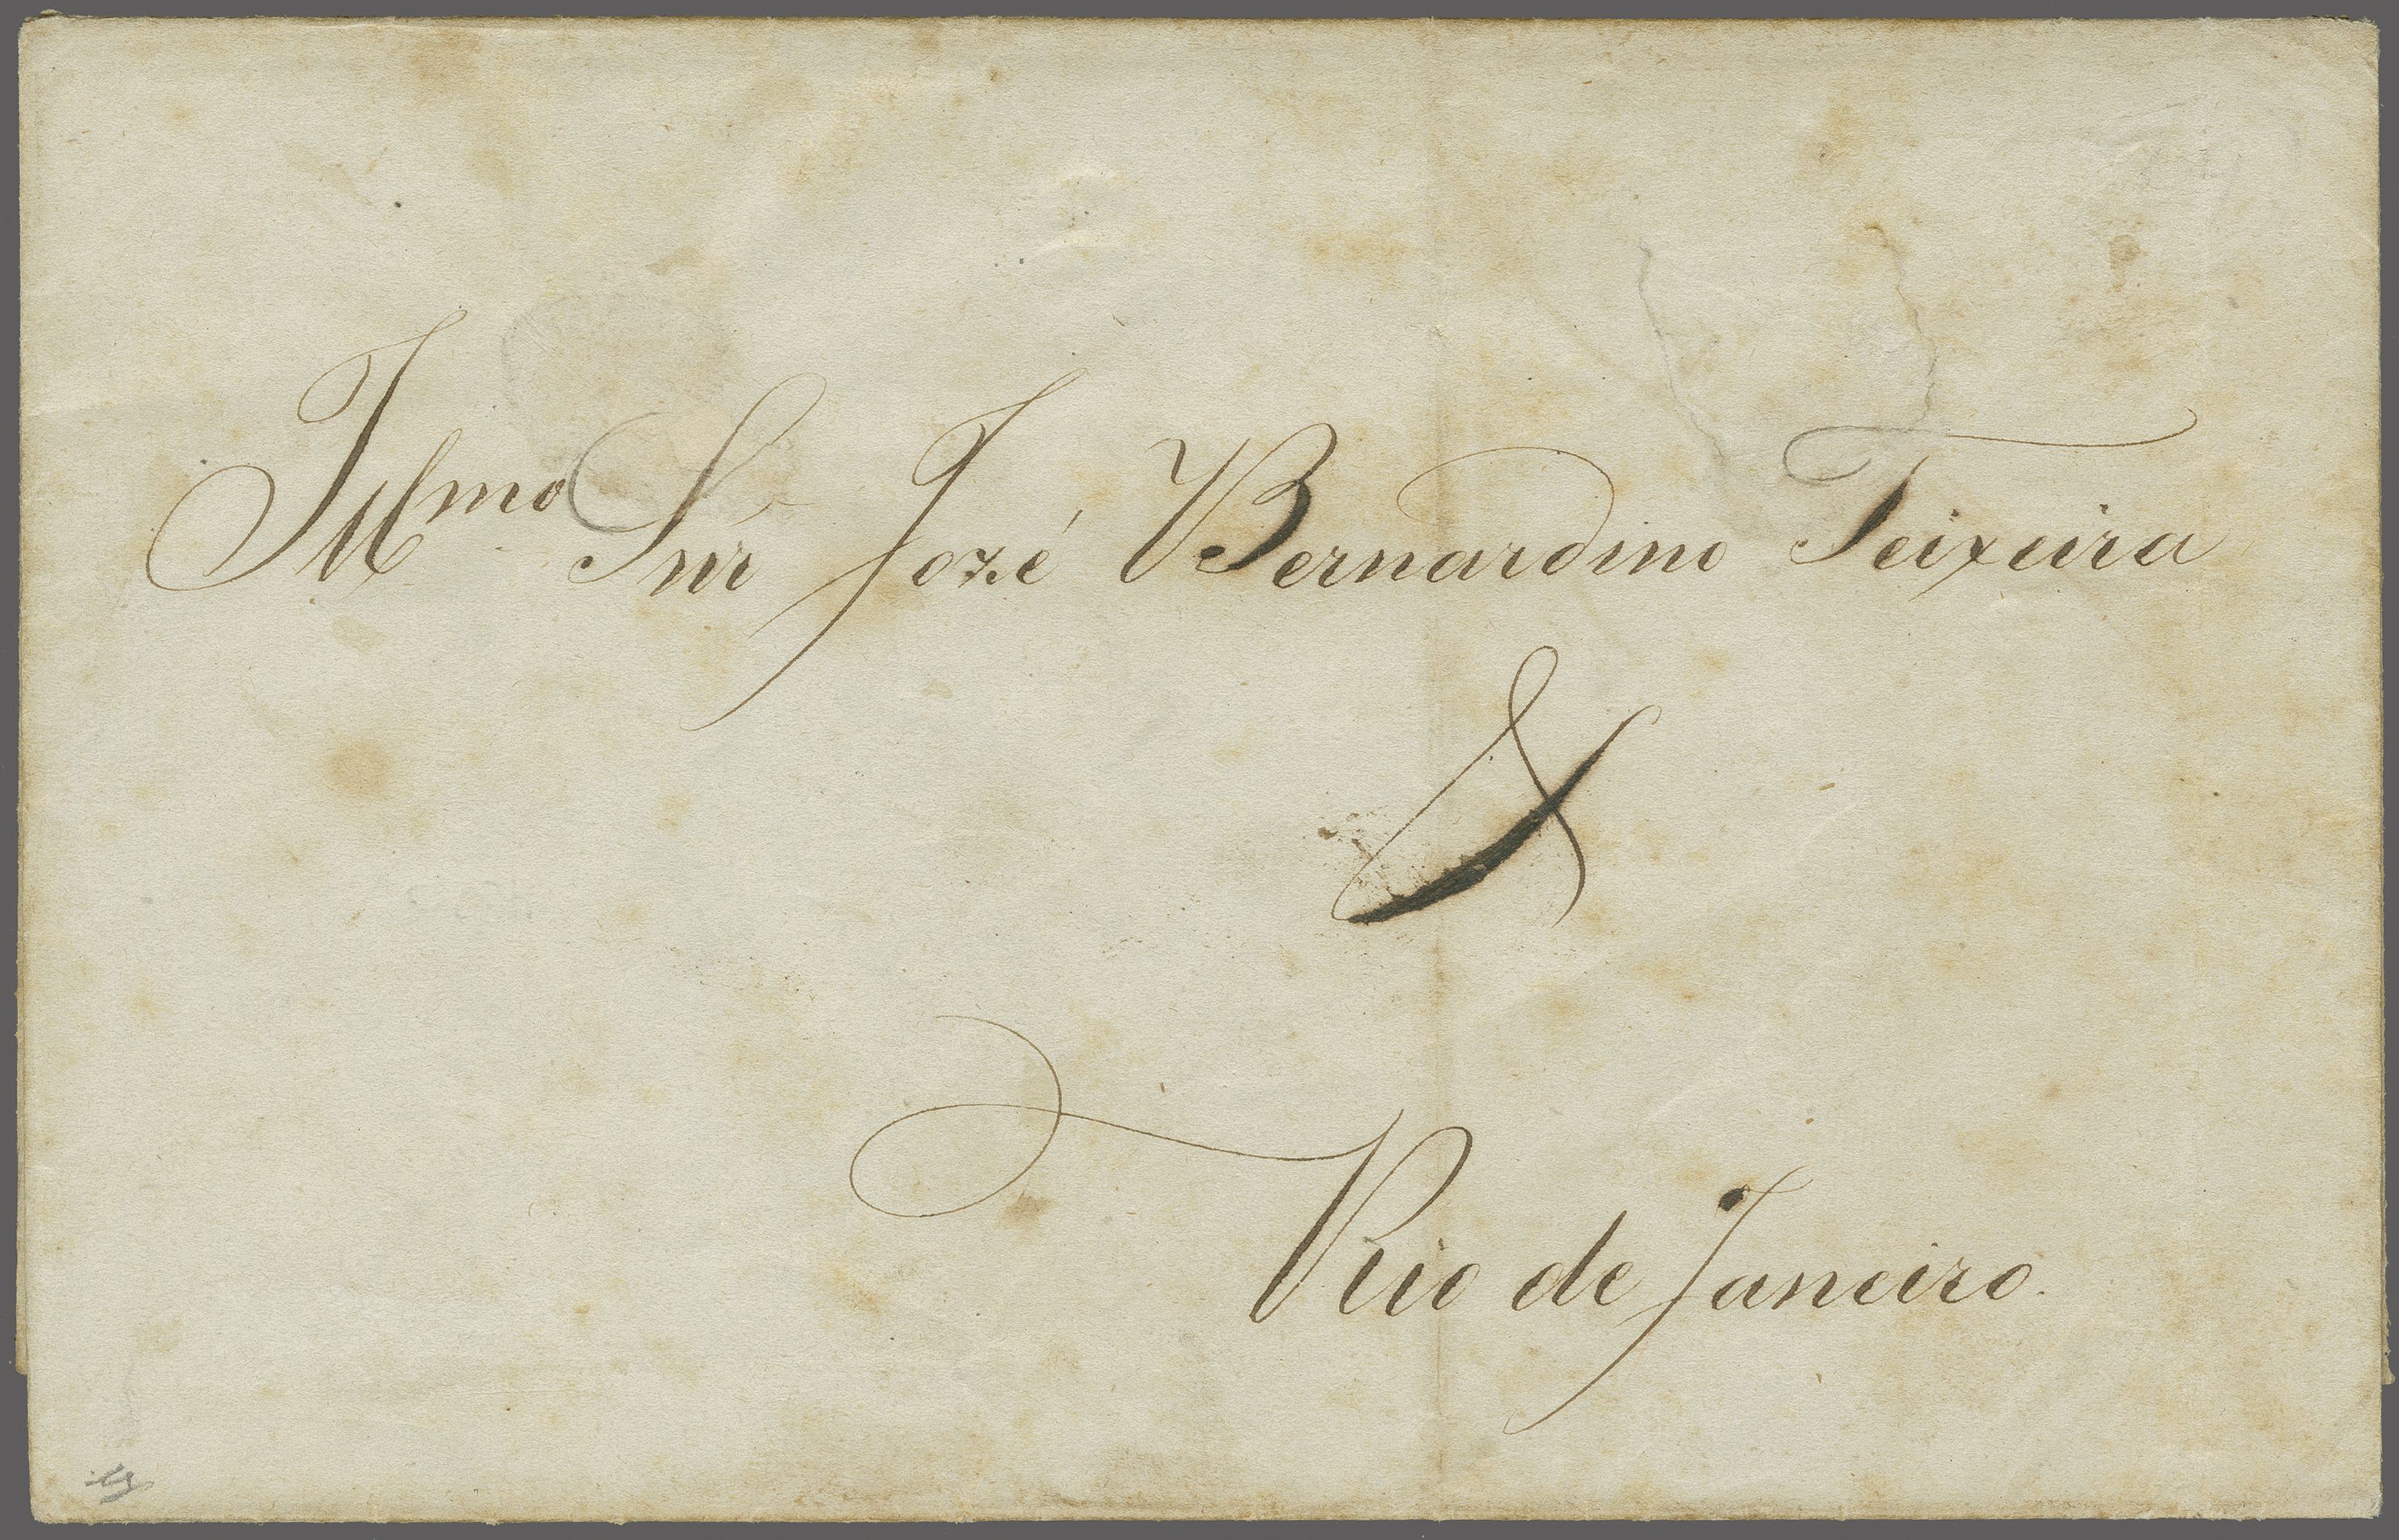 Illmo Snr José Bernardino Teixeira
&
Rio de Janeiro.